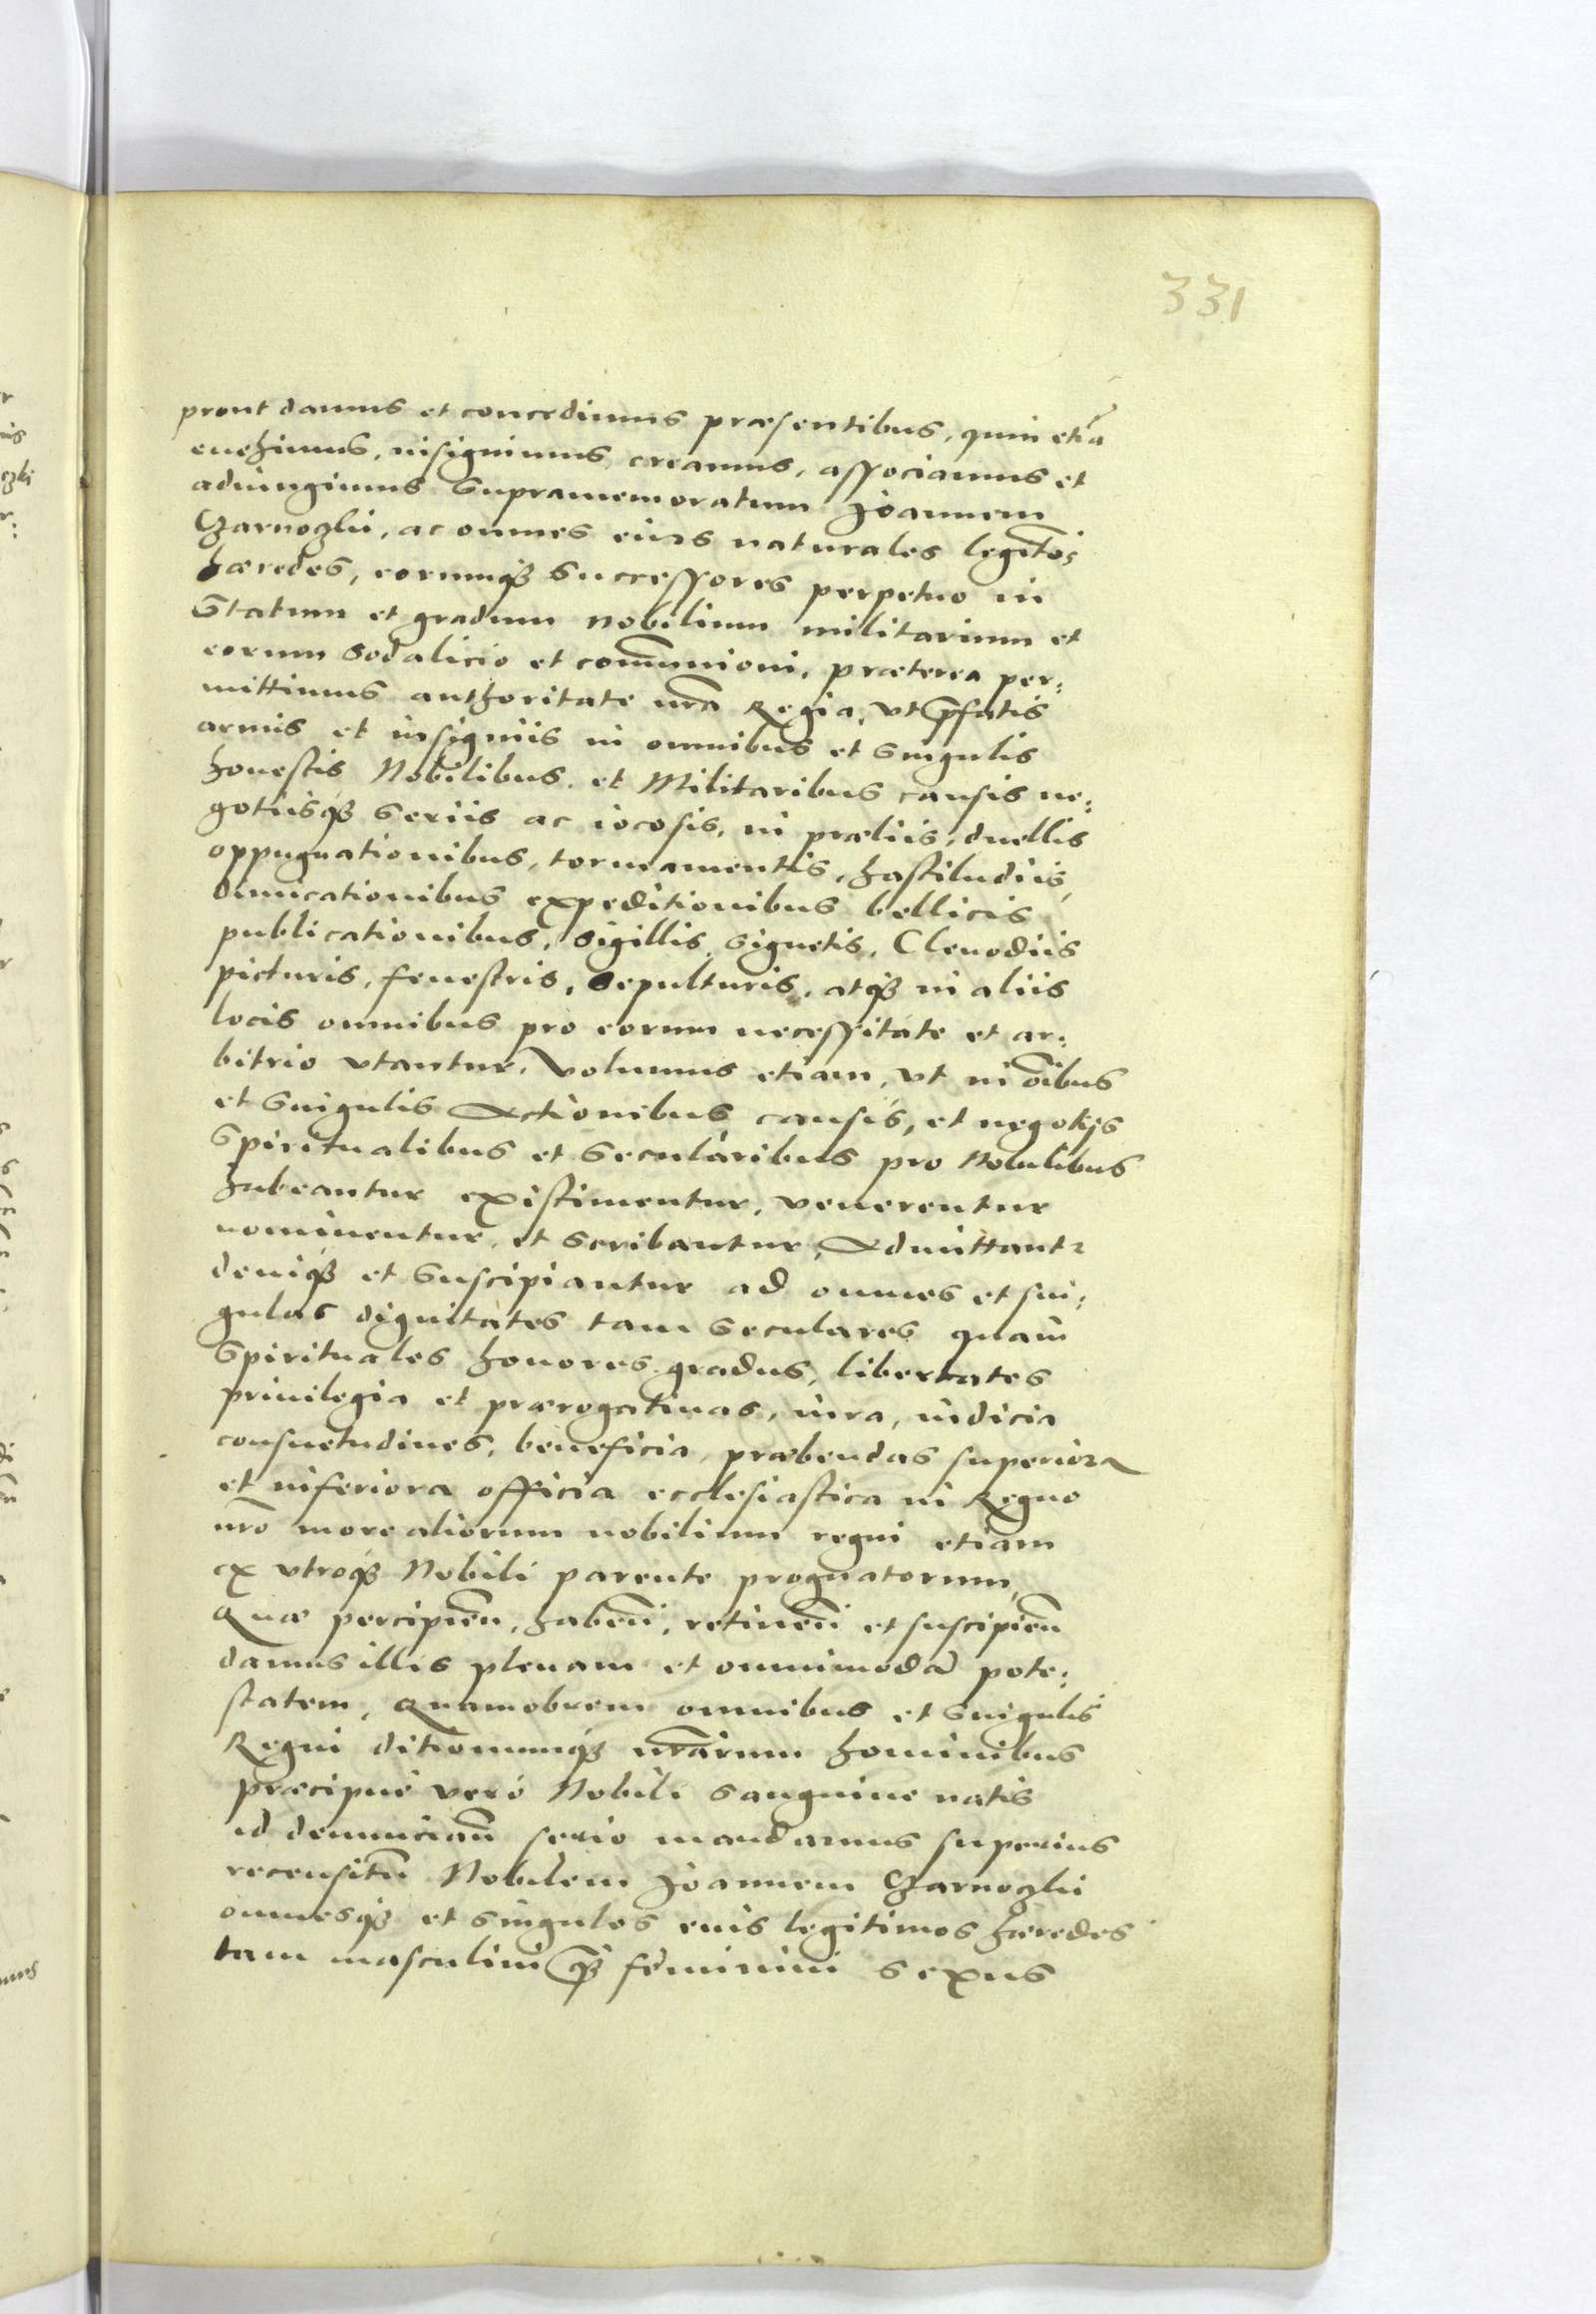 331
prout damus et concedimus præsentibus, quin etiã
euehimus, insignimus, creamus, associamus et
adiungimus Supramemoratum Joannem
Czarnoczki, ac omnes eius naturales legitos
hæredes, eorumqꝫ Successores perpetuo in
Statum et gradum nobilium militarium et
eorum sodalicio et com̃unioni, præterea per:
mittimus authoritate nr̃a Regia, vt p̃fatis
armis et insigniis in omnibus et singulis
honestis Nobilibus, et Militaribus causis ne:
gotiisqꝫ Seriis ac iocosis, in præliis, duellis
oppugnationibus, torneamentis, hastiludiis,
dimicationibus expeditionibus bellicis
publicationibus, sigillis, signetis, Clenodiis
picturis, fenestris, sepulturis, atqꝫ in aliis
locis omnibus pro eorum necessitate et ar:
bitrio vtantur, Volumus etiam, vt in oĩbus
et singulis Actionibus, causis, et negotijs
Spiritualibus et Secularibus pro Nobilibus
habeantur existimentur, venerentur
nominentur, et scribantur, Admittantr
deniqꝫ et Suscipiantur ad omnes et sin:
gulas dignitates tam Seculares quam
Spirituales honores gradus, libertates
priuilegia et prærogatiuas, iura, iudicia
consuetudines, beneficia, præbendas superiora
et inferiora officia ecclesiastica in Regno
nr̃o more aliorum nobilium regni etiam
ex vtroqꝫ Nobili parente prognatorum,
Quæ percipieñ, habeñ, retineñ et suscipieñ
damus illis plenam et omnimodã pote:
statem, Quamobrem omnibus et singulis
Regni ditionumqꝫ nr̃arum hominibus
præcipuè verò Nobili sanguine natis
id denunciañ serio mandamus superius
recensitũ Nobilem Joannem Czarnoczki
omnesqꝫ et singulos eius legitimos hæredes
tam masculini q̃ꝫ feminini sexus